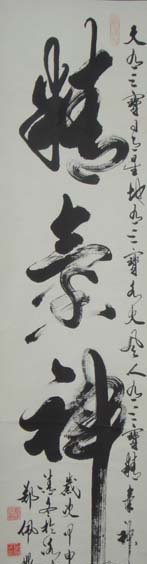 天有三寶日月星地有三寶水火風人有三寶精氣神
精氣神
歲在甲申
鄭佩